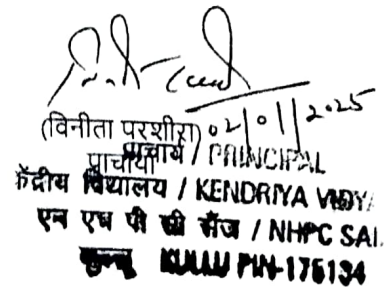 02/01/2025
(विनीता परशीरा)
प्राचार्य / PRINCIPAL
प्राचार्या
केंद्रीय विद्यालय / KENDRIYA VIDYA
एन एच पी सी सैंज / NHPC SAI
कुल्लू KULLU PIN-175134